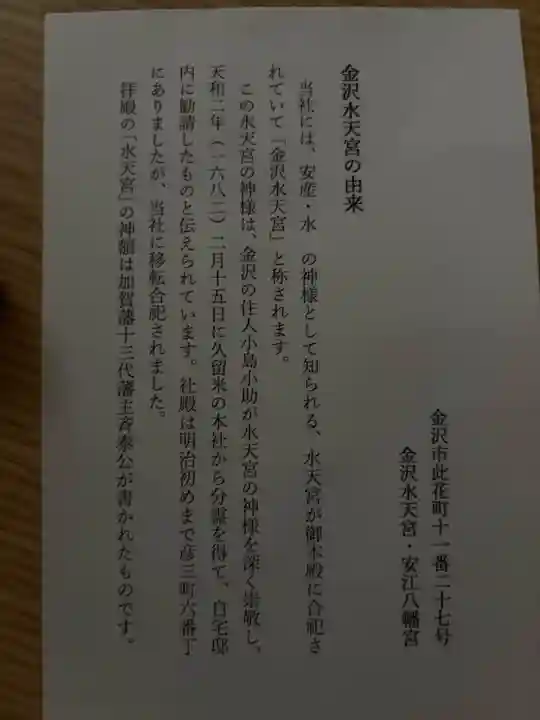 金沢水天宮の由来
当社には、安産・水 の神様として知られる、水天宮が御本殿に合祀さ
れていて「金沢水天宮」と称されます。
この水天宮の神様は、金沢の住人小島小助が水天宮の神様を深く崇敬し、
天和二年（一六八二）二月十五日に久留米の本社から分霊を得て、自宅邸
内に勧請したものと伝えられています。社殿は明治初めまで彦三町六番丁
にありましたが、当社に移転合祀されました。
拝殿の「水天宮」の神額は加賀藩十三代藩主斉泰公が書かれたものです。
金沢市此花町十一番二十七号
金沢水天宮・安江八幡宮